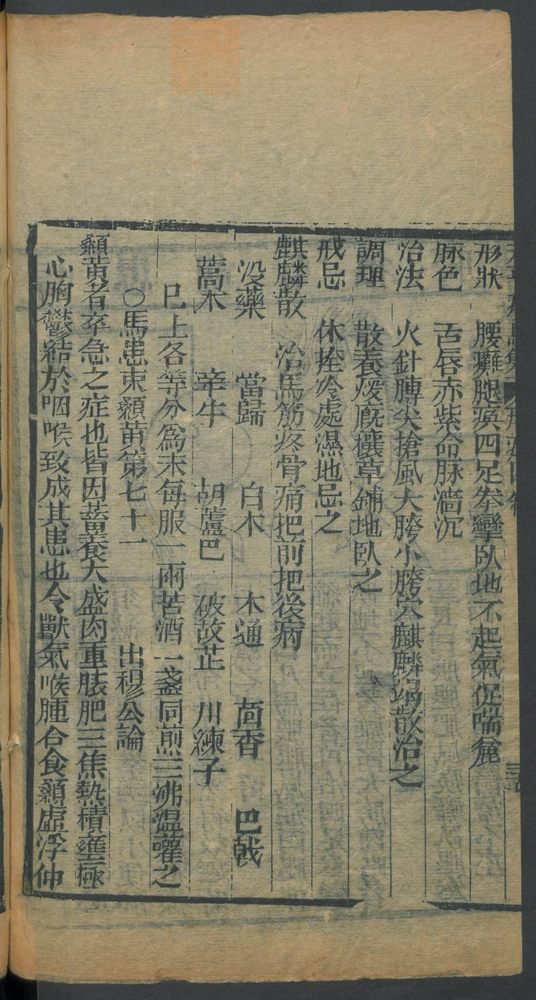 形狀 腰癱腿瘓四足拳攣臥地不起氣促喘麄
脉色 舌唇赤紫命脉濇沉
治法 火針膊尖搶風大胯小胯穴麒麟竭散治之
調理 散養煖厩穰草鋪地臥之
戒忌 休拴冷處濕地忌之
麒麟散 治馬筋疼骨痛把前把後病
没藥 當歸 白术 木通 茴香 巴戟
藁本 牽牛 胡蘆巴 破故芷 川練子
巳上各等分爲末每服一兩苦酒一盞同煎三沸温灌之
○馬患束顙黄第七十一 出穆公論
顙黄者卒急之症也皆因蓄養大盛肉重膘肥三焦熱積壅極
心胸鬱結於咽喉致成其患也令獸氣喉腫合食顙虚浮伸